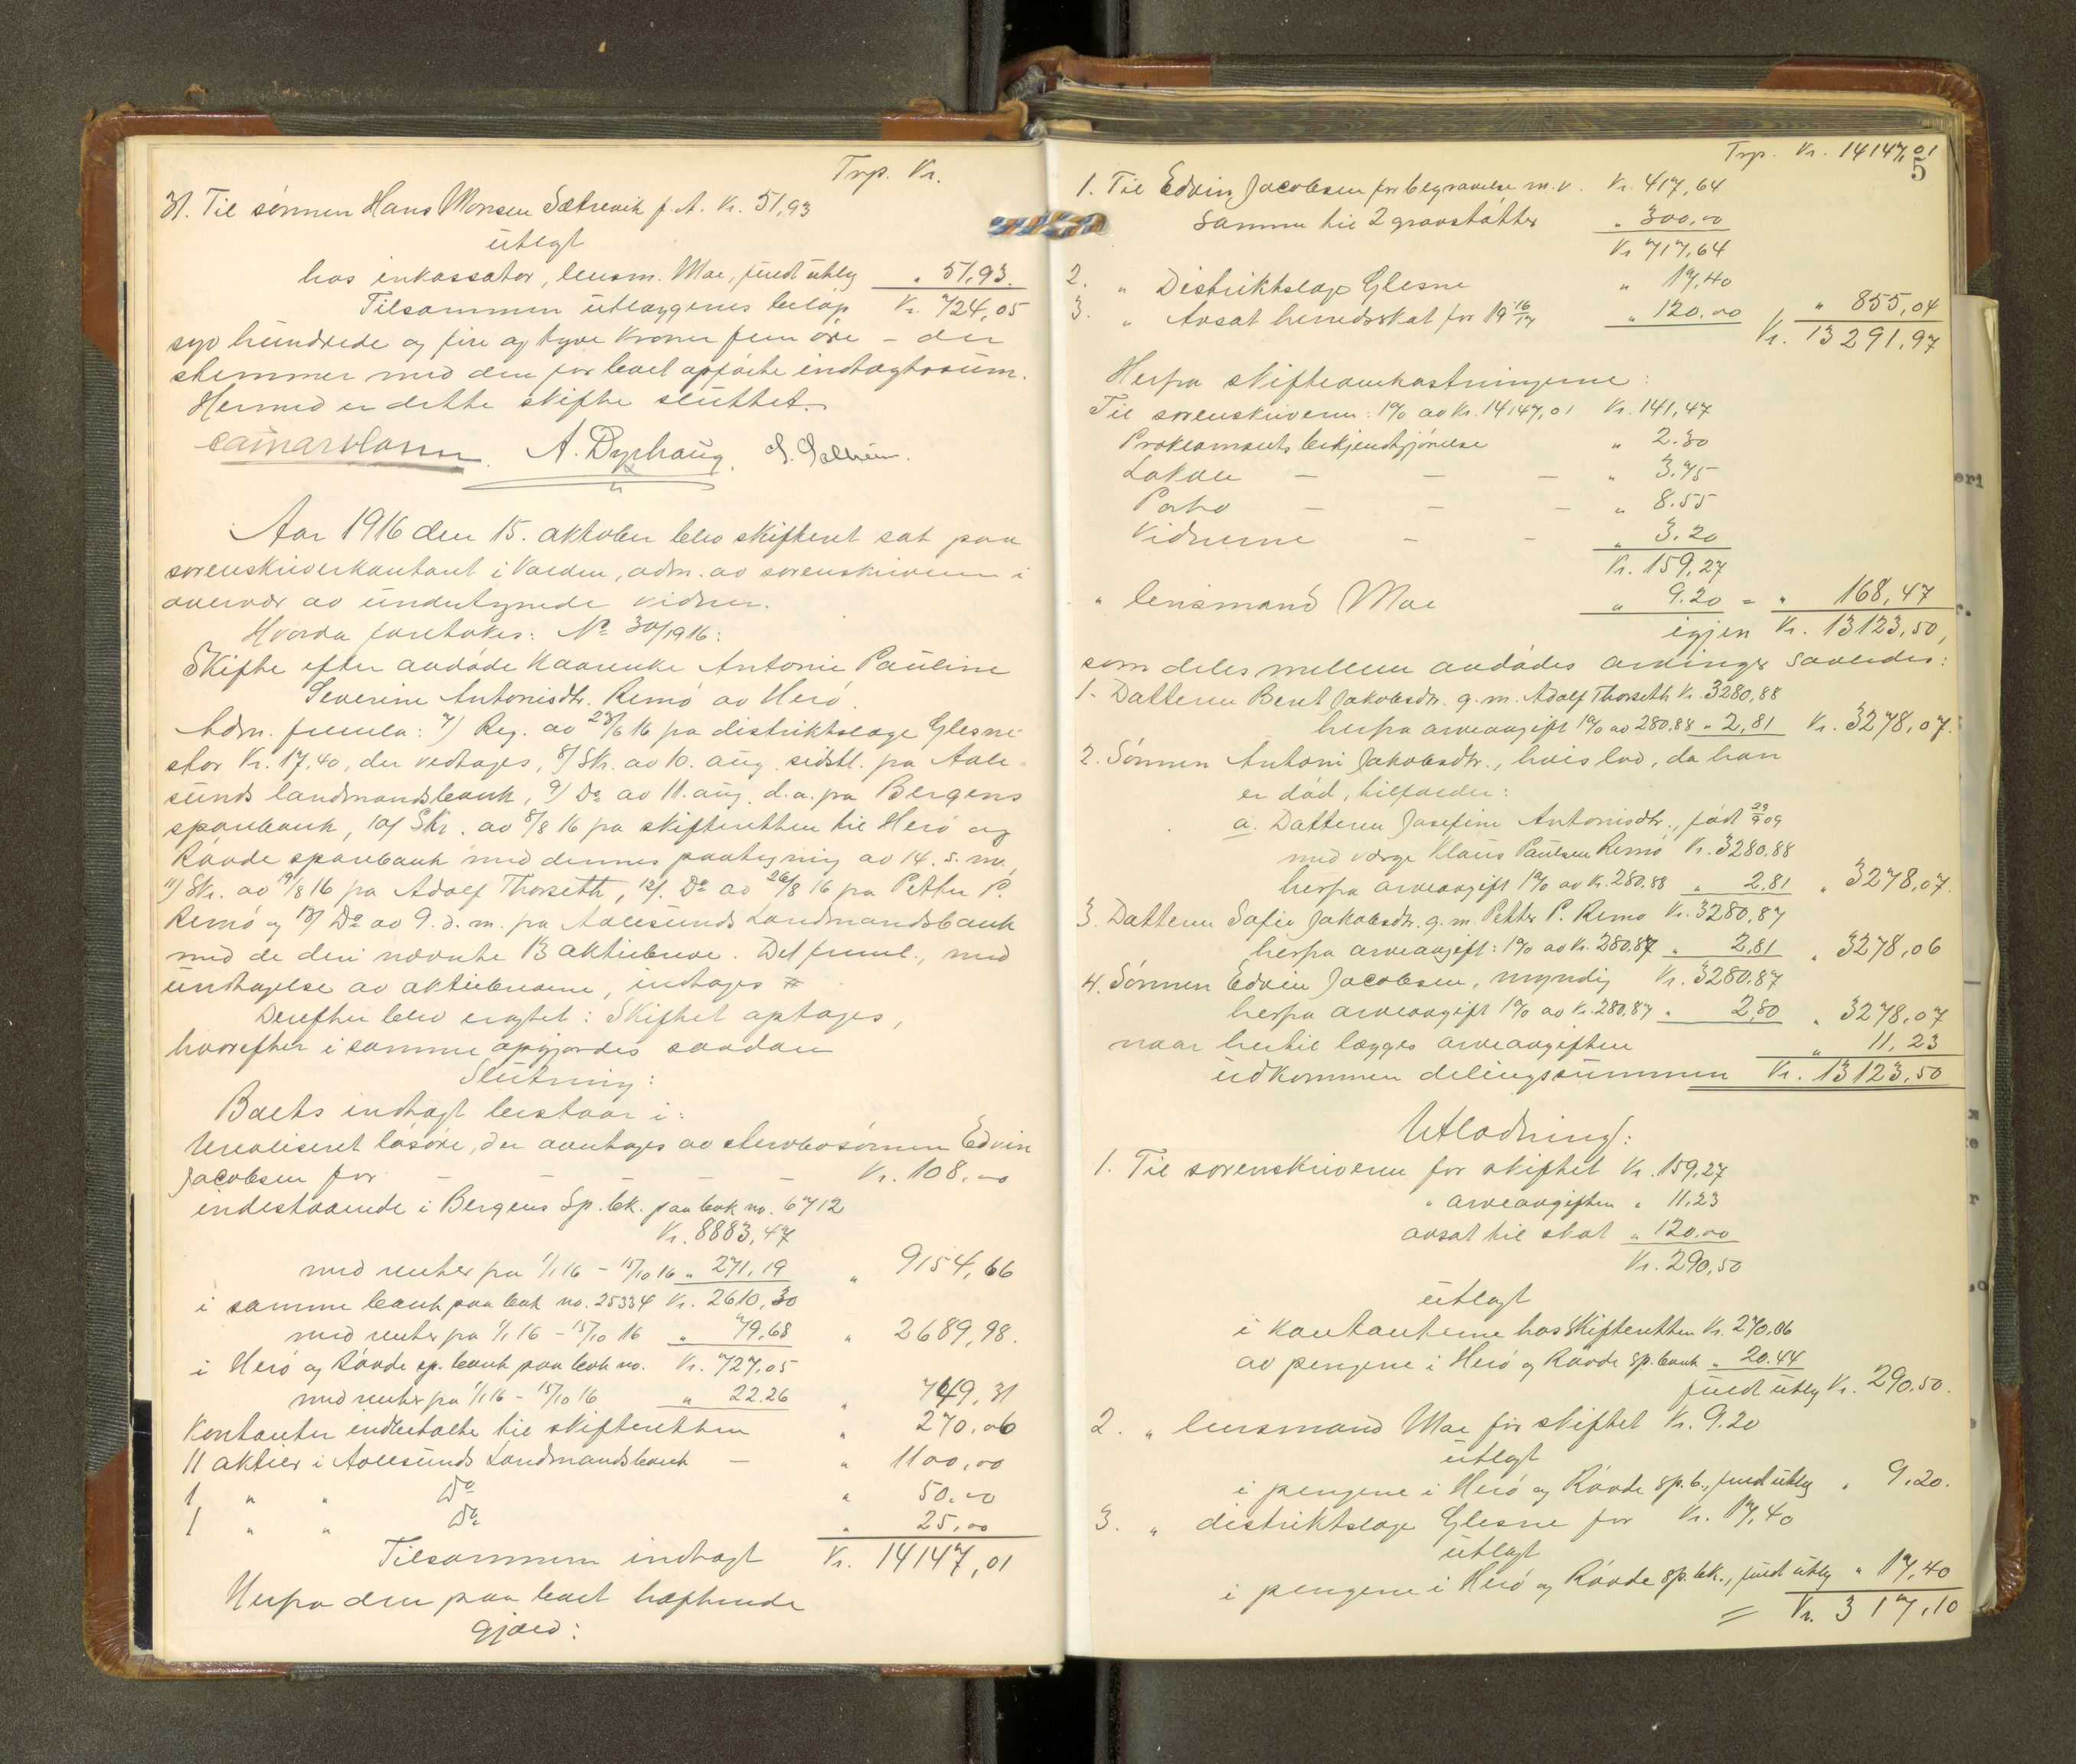 Trp. Kr.
31. Til sønnen Hans Monsen Sætrevik f. A. Kr. 51,93
utlagt
hos inkassator, lensm. Moe, fuldt utlæg " 51,93.
Tilsammen utlæggenes beløp Kr. 724,05
syv hundrede og fire og tyve kroner fem øre – der
stemmer med den for boet opførte indtægtssum.
Hermed er dette skifte sluttet.
A. Dyrhaug. S. Solheim.
Aar 1916 den 15. oktober blev skifteret sat paa
sorenskriverkontoret i Volden, adm. av sorenskriveren i
overvær av undertegnede vidner.
Hvorda foretokes: No 30/1916:
Skifte efter avdøde Kaarenke Antonie Pauline
Severine Antonisdtr. Remø av Herø.
Adm. fremla: 7) Reg. av 23/6 16 fra distriktslæge Glesne
stor Kr. 17.40, der vedtages, 8) Skr. av 10. aug. sidstl. fra Aale-
sunds landmandsbank, 9) Do av 11. aug. d.a. fra Bergens
sparebank, 10) Skr. av 8/8 16 fra skifteretten til Herø og
Røvde sparebank med dennes paategning av 14. s.m.,
11) Skr. av 19/8 16 fra Adolf Thorseth, 12) Do av 26/8 16 fra Petter P.
Remø og 13) Do av 9. d.m. fra Aalesunds Landmandsbank
med de deri nævnte 13 aktiebreve. Det freml., med
undtagelse av aktiebrevene, indtages #
Derefter blev eragtet: Skiftet optages,
hvorefter i samme opgjordes saadan
Slutning:
Boets indtægt bestaar i:
Urealiseret løsøre, der overtages av stervbosønnen Edvin
Jacobsen for – – Kr. 108,00
indestaaende i Bergens Sp.bk. paa bok no. 6712
Kr. 8883,47
med renter fra 1/1 16 – 15/10 16 " 271,19 " 9154,66
i samme bank paa bok no. 25334 Kr. 2610,30
med renter fra 1/1 16 – 15/10 16 " 79,68 " 2689,98.
i Herø og Røvde sp.bank paa bok no. Kr. 727,05
med renter fra 1/1 16 – 15/10 16 " 22.26 " 749,31
Kontanter indbetalte til skifteretten " 270,06
11 aktier i Aalesunds Landmandsbank – " 1100,00
1 " " Do " 50,00
1 " " Do " 25,00
Tilsammen indtægt Kr. 14147,01
Herfra den paa boet heftende
gjæld:
Trp. Kr. 14147,01
5
1. Til Edvin Jacobsen for begravelse m.v. Kr. 417,64
Samme til 2 gravstøtter " 300,00
Kr. 717,64
2. " Distriktslæge Glesne " 17,40
3. " Avsat herredsskat for 19 16/17 " 120.00 " 855,04
Kr. 13291,97
Herfra skifteomkostningerne:
Til sorenskriveren: 1% av Kr. 14147,01 Kr. 141,47
Proklamaets bekjendtgjørelse " 2.30
Lokale – – – " 3.75
Porto – – – " 8.55
Vidnerne – – " 3.20
Kr. 159,27
" lensmand Moe " 9.20 = " 168,47
igjen Kr. 13123,50,
som deles mellem avdødes arvinger saaledes:
1. Datteren Beret Jakobsdtr. g.m. Adolf Thorseth Kr. 3280,88
herfra arveavgift 1% av 280.88 " 2,81 Kr. 3278,07.
2. Sønnen Antoni Jakobsdtr., hvis lod, da han
er død, tilfalder:
a. Datteren Josefine Antonisdtr., født 29/9 09
med verge Klaus Paulsen Remø Kr. 3280.88
herfra arveavgift 1% av Kr. 280.88 " 2,81 " 3278,07.
3. Datteren Sofie Jakobsdtr. g.m. Petter P. Remø Kr. 3280,87
herfra arveavgift: 1% av Kr. 280.87 " 2,81 " 3278,06
4. Sønnen Edvin Jacobsen, myndig Kr. 3280,87
herfra arveavgift 1% av Kr. 280,87 " 2,80 " 3278,07
naar hertil lægges arveavgiften " 11,23
udkommer delingssummen Kr. 13123,50
Utlodning:
1. Til sorenskriveren for skiftet Kr. 159,27
" arveavgiften " 11,23
avsat til skat " 120,00
Kr. 290,50
utlagt
i kontanterne hos Skifteretten Kr. 270,06
av pengene i Herø og Røvde sp.bank " 20.44
fuldt utlæg Kr. 290,50.
2. " lensmand Moe for skiftet Kr. 9.20
utlagt
i pengene i Herø og Røvde sp.b., fuldt utlæg " 9,20.
3. " distriktslæge Glesne for Kr. 17,40
utlagt
i pengene i Herø og Røvde sp.bk., fuldt utlæg " 17,40
= Kr. 317,10